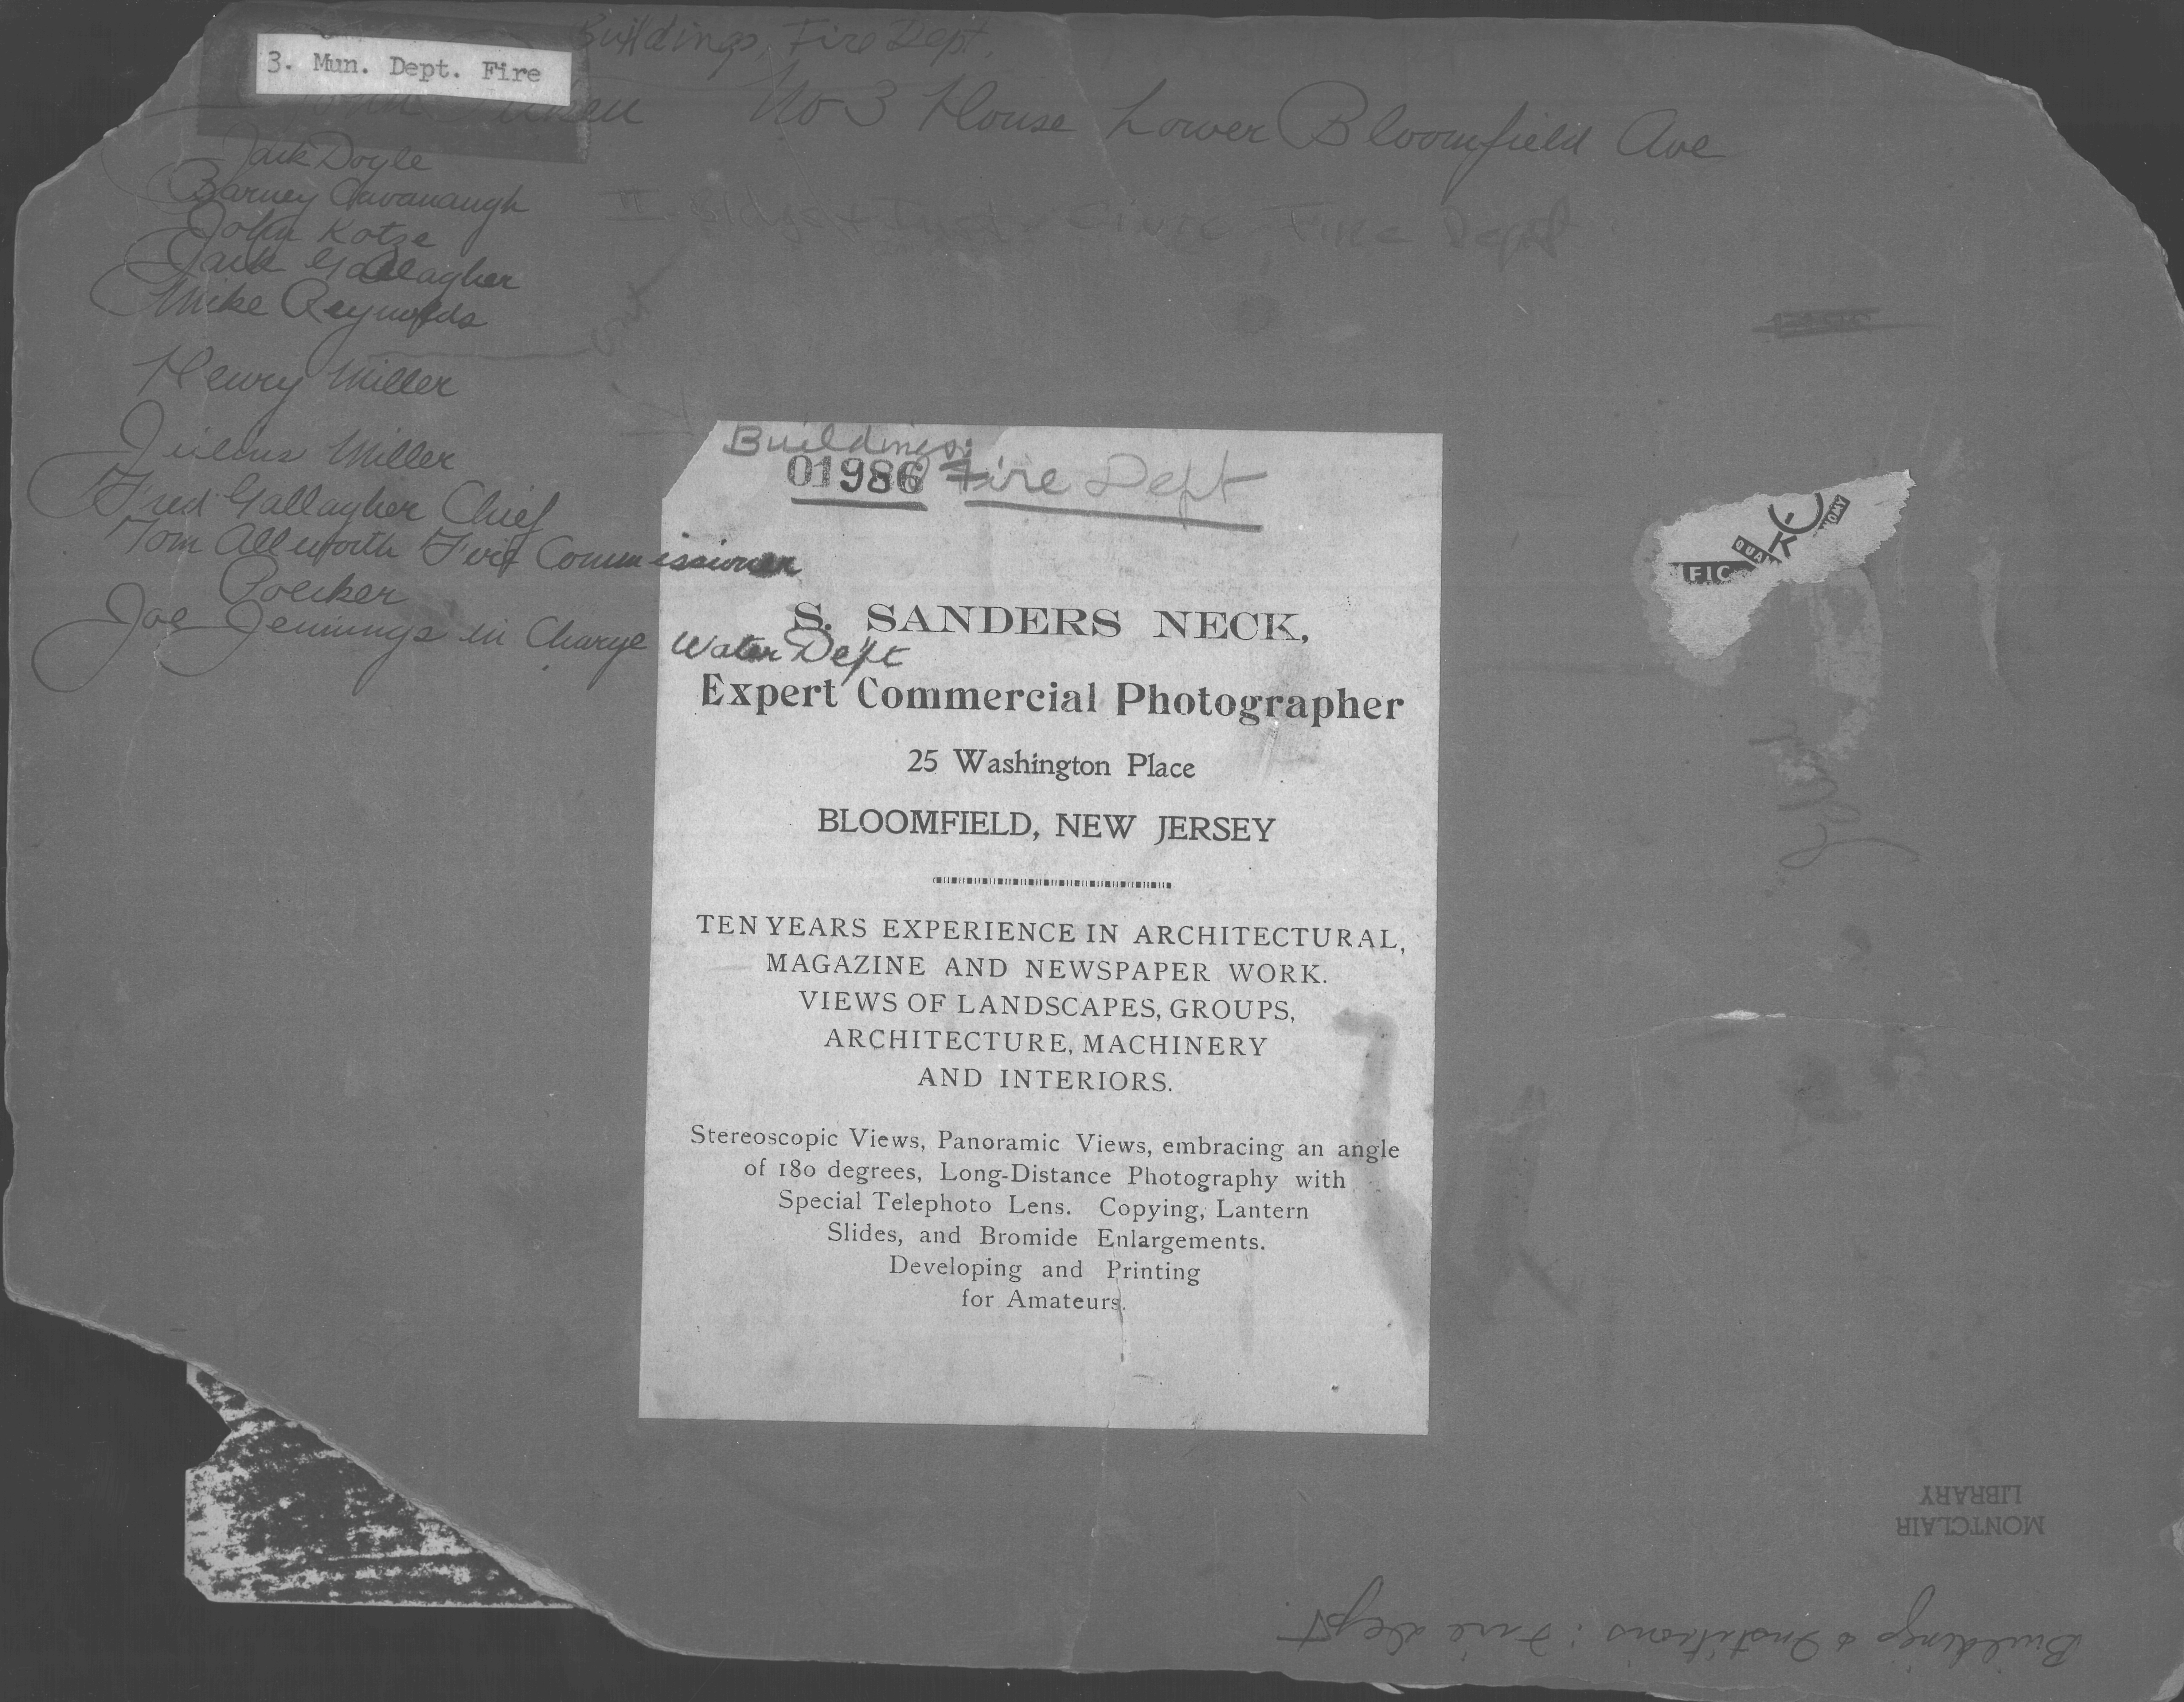 Buildings, Fire Dept.
3. Mun. Dept. Fire
No 3 House Lower Bloomfield Ave
Jack Doyle
Barney Cavanaugh
John Kotze
Jack Gallagher
Mike Reynolds
Henry Miller
Julius Miller
Fred Gallagher Chief
Tom Allworth Fire Commissioner
Poecker
Joe Jennings in Charge Water Dept
Fire Dept
Buildings:
01986 Fire Dept
S. SANDERS NECK,
Expert Commercial Photographer
25 Washington Place
BLOOMFIELD, NEW JERSEY
TEN YEARS EXPERIENCE IN ARCHITECTURAL,
MAGAZINE AND NEWSPAPER WORK.
VIEWS OF LANDSCAPES, GROUPS,
ARCHITECTURE, MACHINERY
AND INTERIORS.
Stereoscopic Views, Panoramic Views, embracing an angle
of 180 degrees, Long-Distance Photography with
Special Telephoto Lens. Copying, Lantern
Slides, and Bromide Enlargements.
Developing and Printing
for Amateurs.
FIC
QUA
K
NOMY
MONTCLAIR
LIBRARY
Buildings & Institutions: Fire Dept